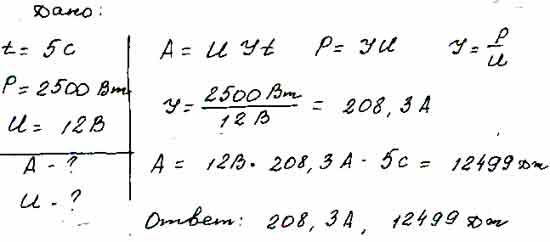 Дано:
t = 5 с
P = 2500 Вт
U = 12 В
A - ?
U - ?
A = U У t P = У U У = P/U
У = 2500 Вт / 12 В = 208,3 А
A = 12 В · 208,3 А · 5 с = 12499 Дж
Ответ: 208,3 А, 12499 Дж